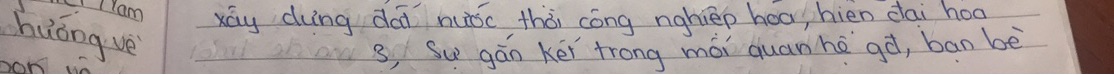 Nam
hướng về
xây dựng đất nước thời công nghiệp hóa, hiện đại hóa
3, Sự gắn kết trong mối quan hệ gđ, bạn bè